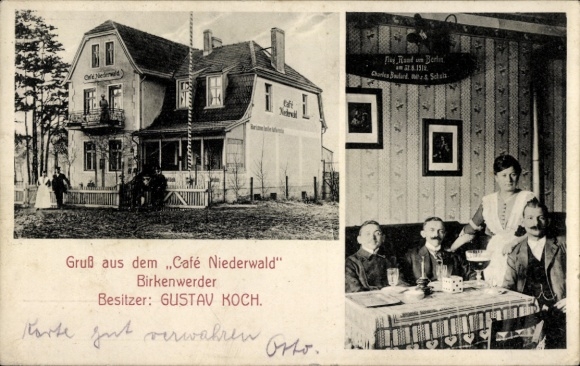 Café Niederwald
Café
Niederwald
Flug „Rund um Berlin"
am 31.8.1912.
Charles Boutard.
Gruß aus dem „Café Niederwald"
Birkenwerder
Besitzer: GUSTAV KOCH.
Karte gut verwahren
Otto.